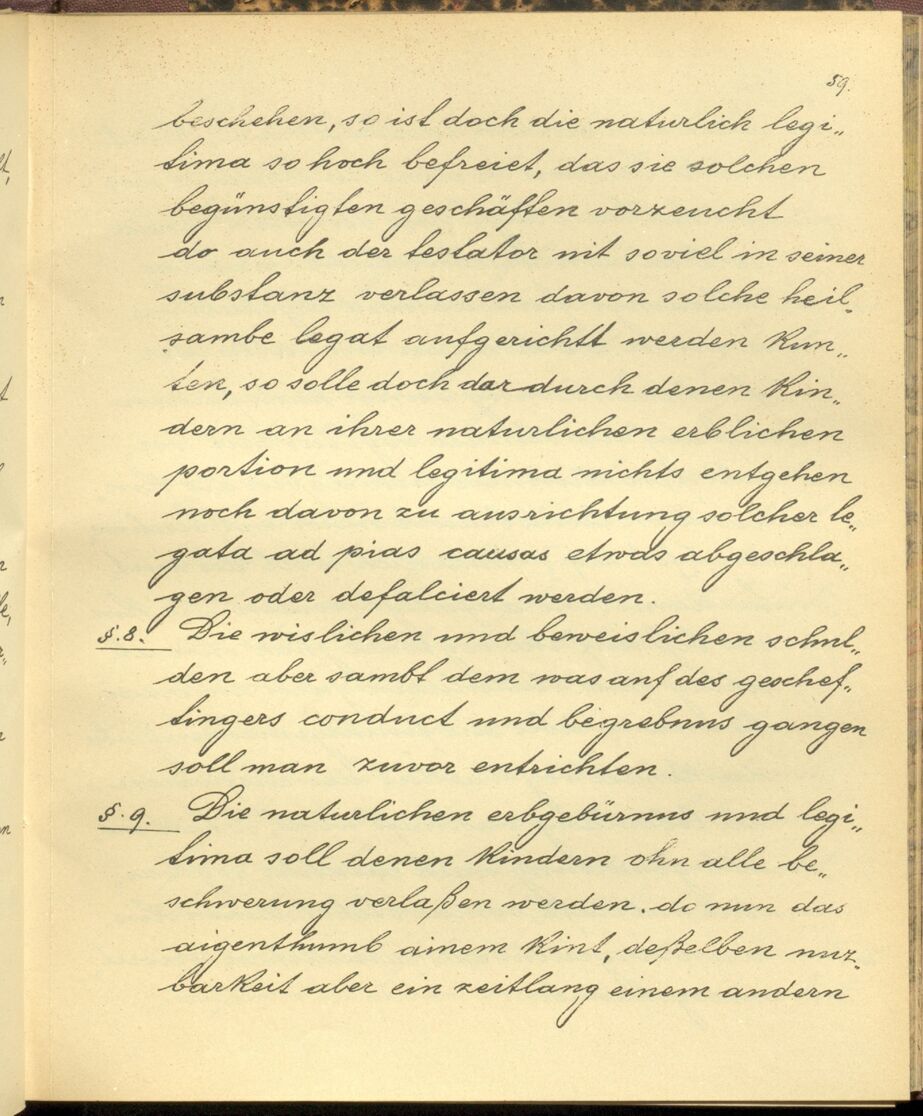 59.
beschehen, so ist doch die naturlich legi„
tima so hoch befreiet, das sie solchen
begünstigten geschäften vorzeucht
do auch der testator nit soviel in seiner
substanz verlassen davon solche heil„
sambe legat aufgerichtt werden kun„
ten, so solle doch dar durch denen kin„
dern an ihrer naturlichen erblichen
portion und legitima nichts entgehen
noch davon zu ausrichtung solcher le„
gata ad pias causas etwas abgeschla„
gen oder defalciert werden.
§.8. Die wislichen und beweislichen schul„
den aber sambt dem was auf des geschef„
tingers conduct und begrebnus gangen
soll man zuvor entrichten.
§.9. Die naturlichen erbgebürnus und legi„
tima soll denen kindern ohn alle be„
schwerung verlaßen werden. do nun das
aigenthumb ainem kint, deßelben nuz„
barkeit aber ein zeitlang einem andern